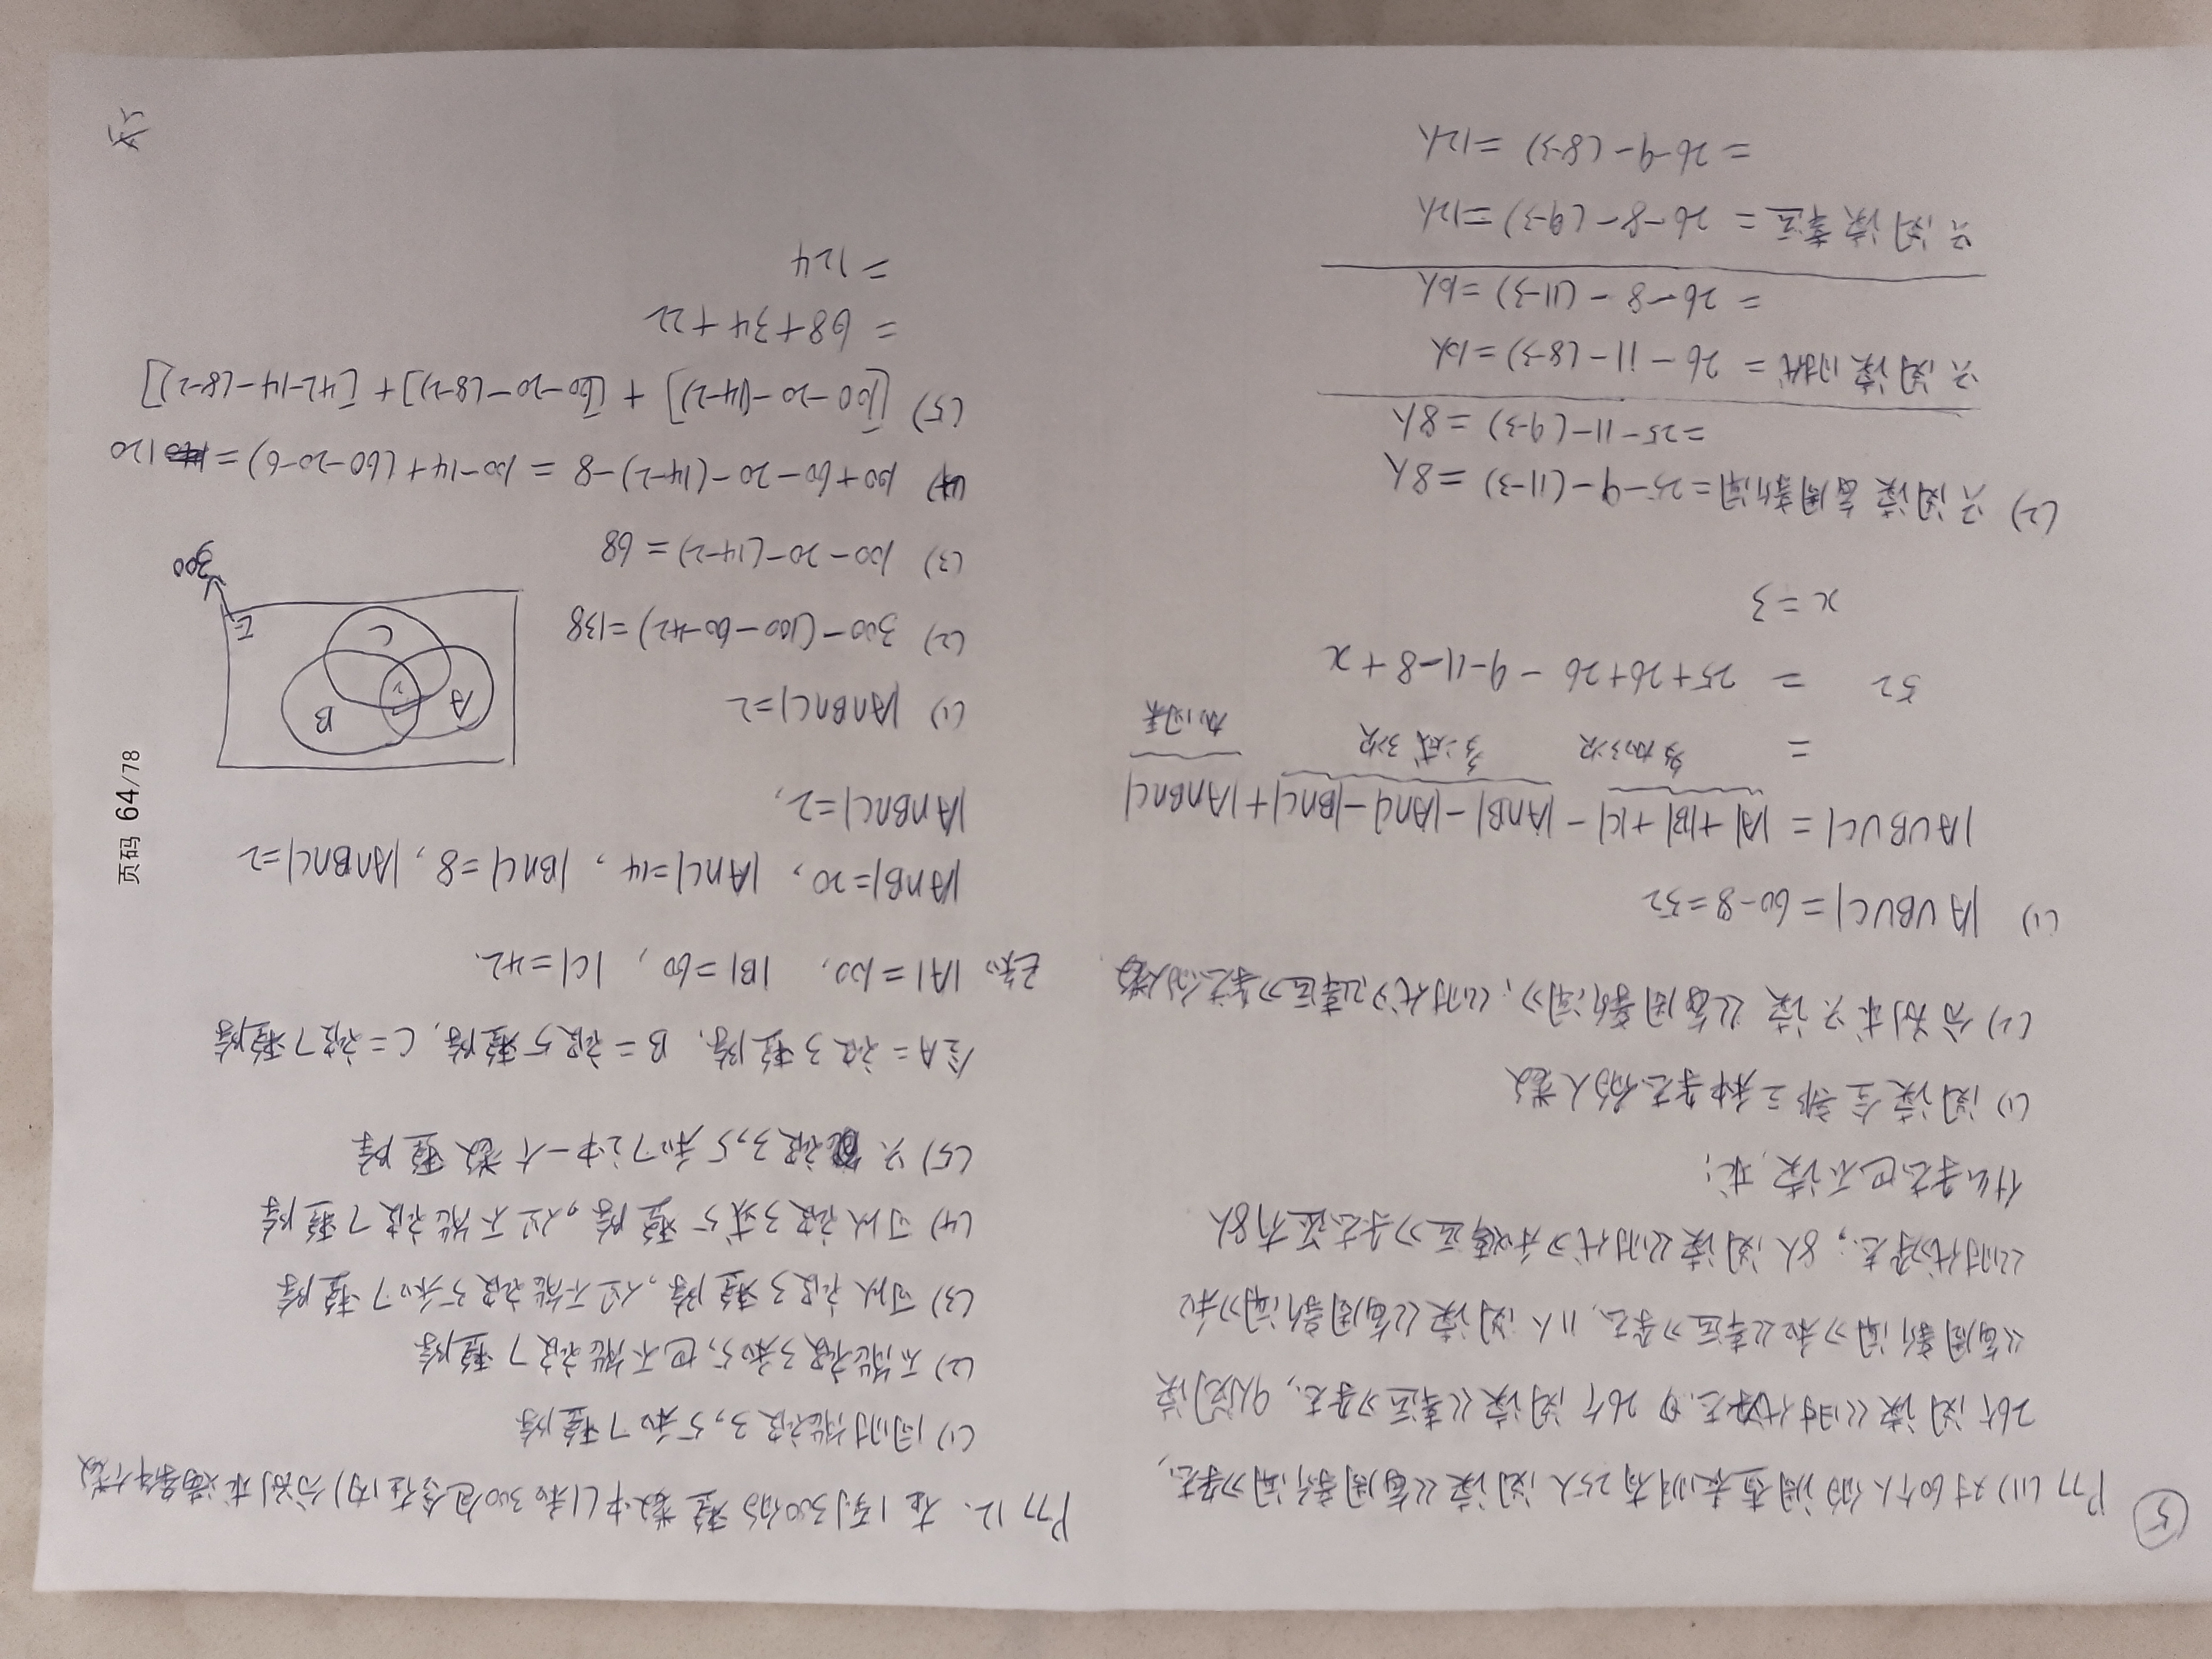 ⑤
P77 (11) 对60个人的调查表明有25人阅读《每周新闻》杂志,
26个阅读《时代》杂志, 26个阅读《幸运》杂志, 9人阅读
《每周新闻》和《幸运》杂志, 11人阅读《每周新闻》和
《时代》杂志; 8人阅读《时代》和《幸运》杂志还有8人
什么杂志也不读, 求:
(1) 阅读全部三种杂志的人数
(2) 分别求只读《每周新闻》、《时代》、《幸运》杂志的人数.
(1) |A∪B∪C| = 60-8=52
|A∪B∪C| = |A|+|B|+|C|-|A∩B|-|A∩C|-|B∩C|+|A∩B∩C|
= 多加3次 多减3次 加回来
52 = 25+26+26-9-11-8+x
x=3
(2) 只阅读每周新闻=25-9-(11-3)=8人
=25-11-(9-3)=8人
只阅读时代= 26-11-(8-3)=10人
= 26-8-(11-3)=10人
只阅读幸运= 26-8-(9-3)=12人
= 26-9-(8-3)=12人
P77 12、在1到300的整数中(1和300包含在内)分别求满条件个数
(1) 同时能被3,5和7整除
(2) 不能被3和5,也不能被7整除
(3) 可以被3整除,但不能被5和7整除
(4) 可以被3或5整除,但不能被7整除
(5) 只能被3,5和7之中一个数整除
令A=被3整除, B=被5整除, C=被7整除
已知 |A|=100, |B|=60, |C|=42.
|A∩B|=20, |A∩C|=14, |B∩C|=8, |A∩B∩C|=2
|A∩B∩C|=2,
(1) |A∩B∩C|=2
(2) 300-(100-60-42)=138
(3) 100-20-(14-2)=68
(4) 100+60-20-(14-2)-8=100-14+(60-20-6)=120
(5) [100-20-(14-2)]+[60-20-(8-2)]+[42-14-(8-2)]
= 68+34+22
= 124
A
B
2
C
E
300
页码 64/78